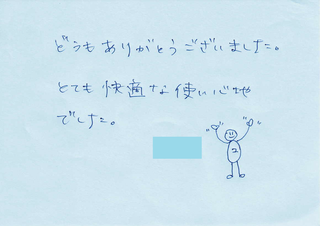 どうもありがとうございました。
とても快適な使い心地
でした。